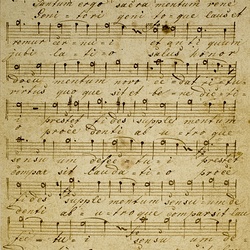 Tantum ergo sacra mentum vene
Geni-tori geni-to-que laus et
remur cer-nu-i et anti quum
jubi la-ti-o salus honor
docu mentum novo ce dat ri-tu
virtus quo que sit et be ne dic-ti
i praestet fi des supple mentum
o proce denti ab u-tro que
sensu um defec tu-i praestet
compar sit lau da-ti-o proce
fi des supple mentum sensu-um de
denti ab u-tro que compar sit lau
fec tu-i sensu um de